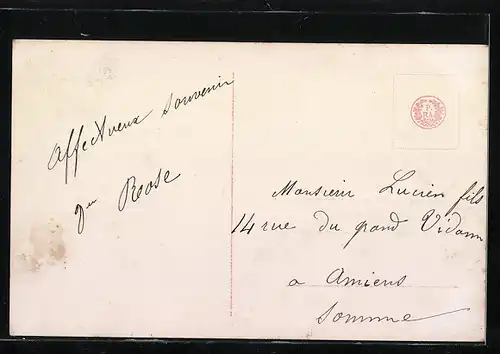 Affectueux souvenir
Roose
Monsieur Lucien fils
14 rue du grand Vidame
a Amiens
Somme